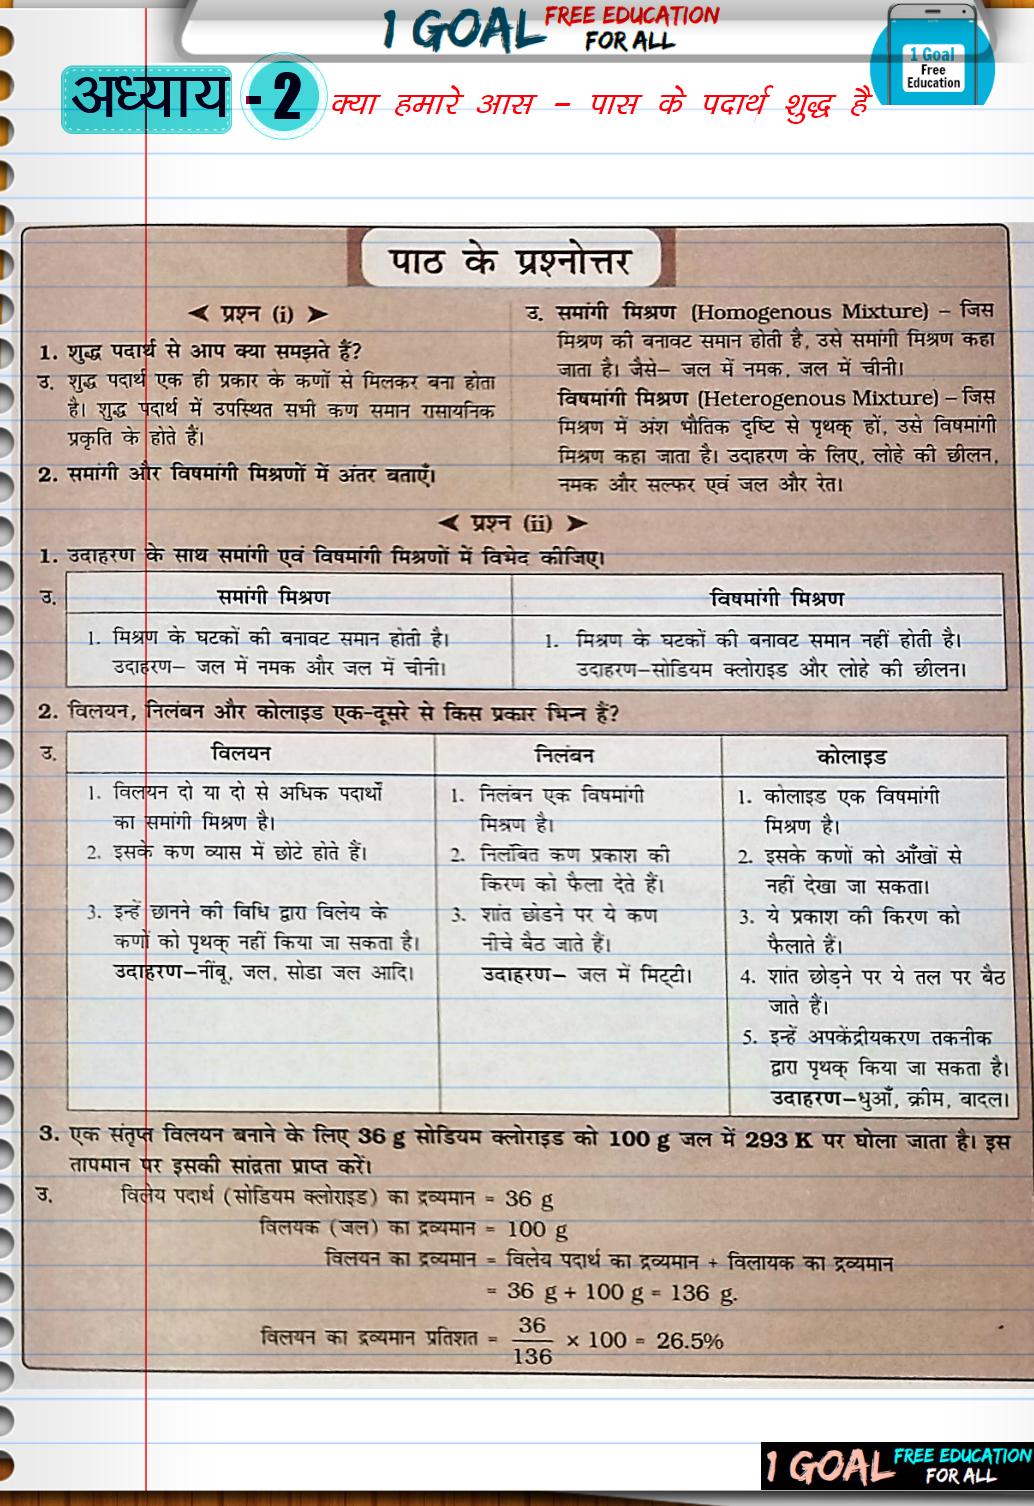 1 GOAL FREE EDUCATION FOR ALL
1 Goal
Free
Education
अध्याय - 2 क्या हमारे आस – पास के पदार्थ शुद्ध है
पाठ के प्रश्नोत्तर
प्रश्न (i)
1. शुद्ध पदार्थ से आप क्या समझते हैं?
उ. शुद्ध पदार्थ एक ही प्रकार के कणों से मिलकर बना होता
है। शुद्ध पदार्थ में उपस्थित सभी कण समान रासायनिक
प्रकृति के होते हैं।
2. समांगी और विषमांगी मिश्रणों में अंतर बताएँ।
उ. समांगी मिश्रण (Homogenous Mixture) – जिस
मिश्रण की बनावट समान होती है, उसे समांगी मिश्रण कहा
जाता है। जैसे– जल में नमक, जल में चीनी।
विषमांगी मिश्रण (Heterogenous Mixture) – जिस
मिश्रण में अंश भौतिक दृष्टि से पृथक् हों, उसे विषमांगी
मिश्रण कहा जाता है। उदाहरण के लिए, लोहे की छीलन,
नमक और सल्फर एवं जल और रेत।
प्रश्न (ii)
1. उदाहरण के साथ समांगी एवं विषमांगी मिश्रणों में विभेद कीजिए।
उ.
समांगी मिश्रण
1. मिश्रण के घटकों की बनावट समान होती है।
उदाहरण– जल में नमक और जल में चीनी।
विषमांगी मिश्रण
1. मिश्रण के घटकों की बनावट समान नहीं होती है।
उदाहरण–सोडियम क्लोराइड और लोहे की छीलन।
2. विलयन, निलंबन और कोलाइड एक-दूसरे से किस प्रकार भिन्न हैं?
उ.
विलयन
1. विलयन दो या दो से अधिक पदार्थों
का समांगी मिश्रण है।
2. इसके कण व्यास में छोटे होते हैं।
3. इन्हें छानने की विधि द्वारा विलेय के
कणों को पृथक् नहीं किया जा सकता है।
उदाहरण–नींबू, जल, सोडा जल आदि।
निलंबन
1. निलंबन एक विषमांगी
मिश्रण है।
2. निलंबित कण प्रकाश की
किरण को फैला देते हैं।
3. शांत छोडने पर ये कण
नीचे बैठ जाते हैं।
उदाहरण– जल में मिट्टी।
कोलाइड
1. कोलाइड एक विषमांगी
मिश्रण है।
2. इसके कणों को आँखों से
नहीं देखा जा सकता।
3. ये प्रकाश की किरण को
फैलाते हैं।
4. शांत छोड़ने पर ये तल पर बैठ
जाते हैं।
5. इन्हें अपकेंद्रीयकरण तकनीक
द्वारा पृथक् किया जा सकता है।
उदाहरण–धुआँ, क्रीम, बादल।
3. एक संतृप्त विलयन बनाने के लिए 36 g सोडियम क्लोराइड को 100 g जल में 293 K पर घोला जाता है। इस
तापमान पर इसकी सांद्रता प्राप्त करें।
उ. विलेय पदार्थ (सोडियम क्लोराइड) का द्रव्यमान = 36 g
विलयक (जल) का द्रव्यमान = 100 g
विलयन का द्रव्यमान = विलेय पदार्थ का द्रव्यमान + विलायक का द्रव्यमान
= 36 g + 100 g = 136 g.
विलयन का द्रव्यमान प्रतिशत = 36/136 × 100 = 26.5%
1 GOAL FREE EDUCATION FOR ALL